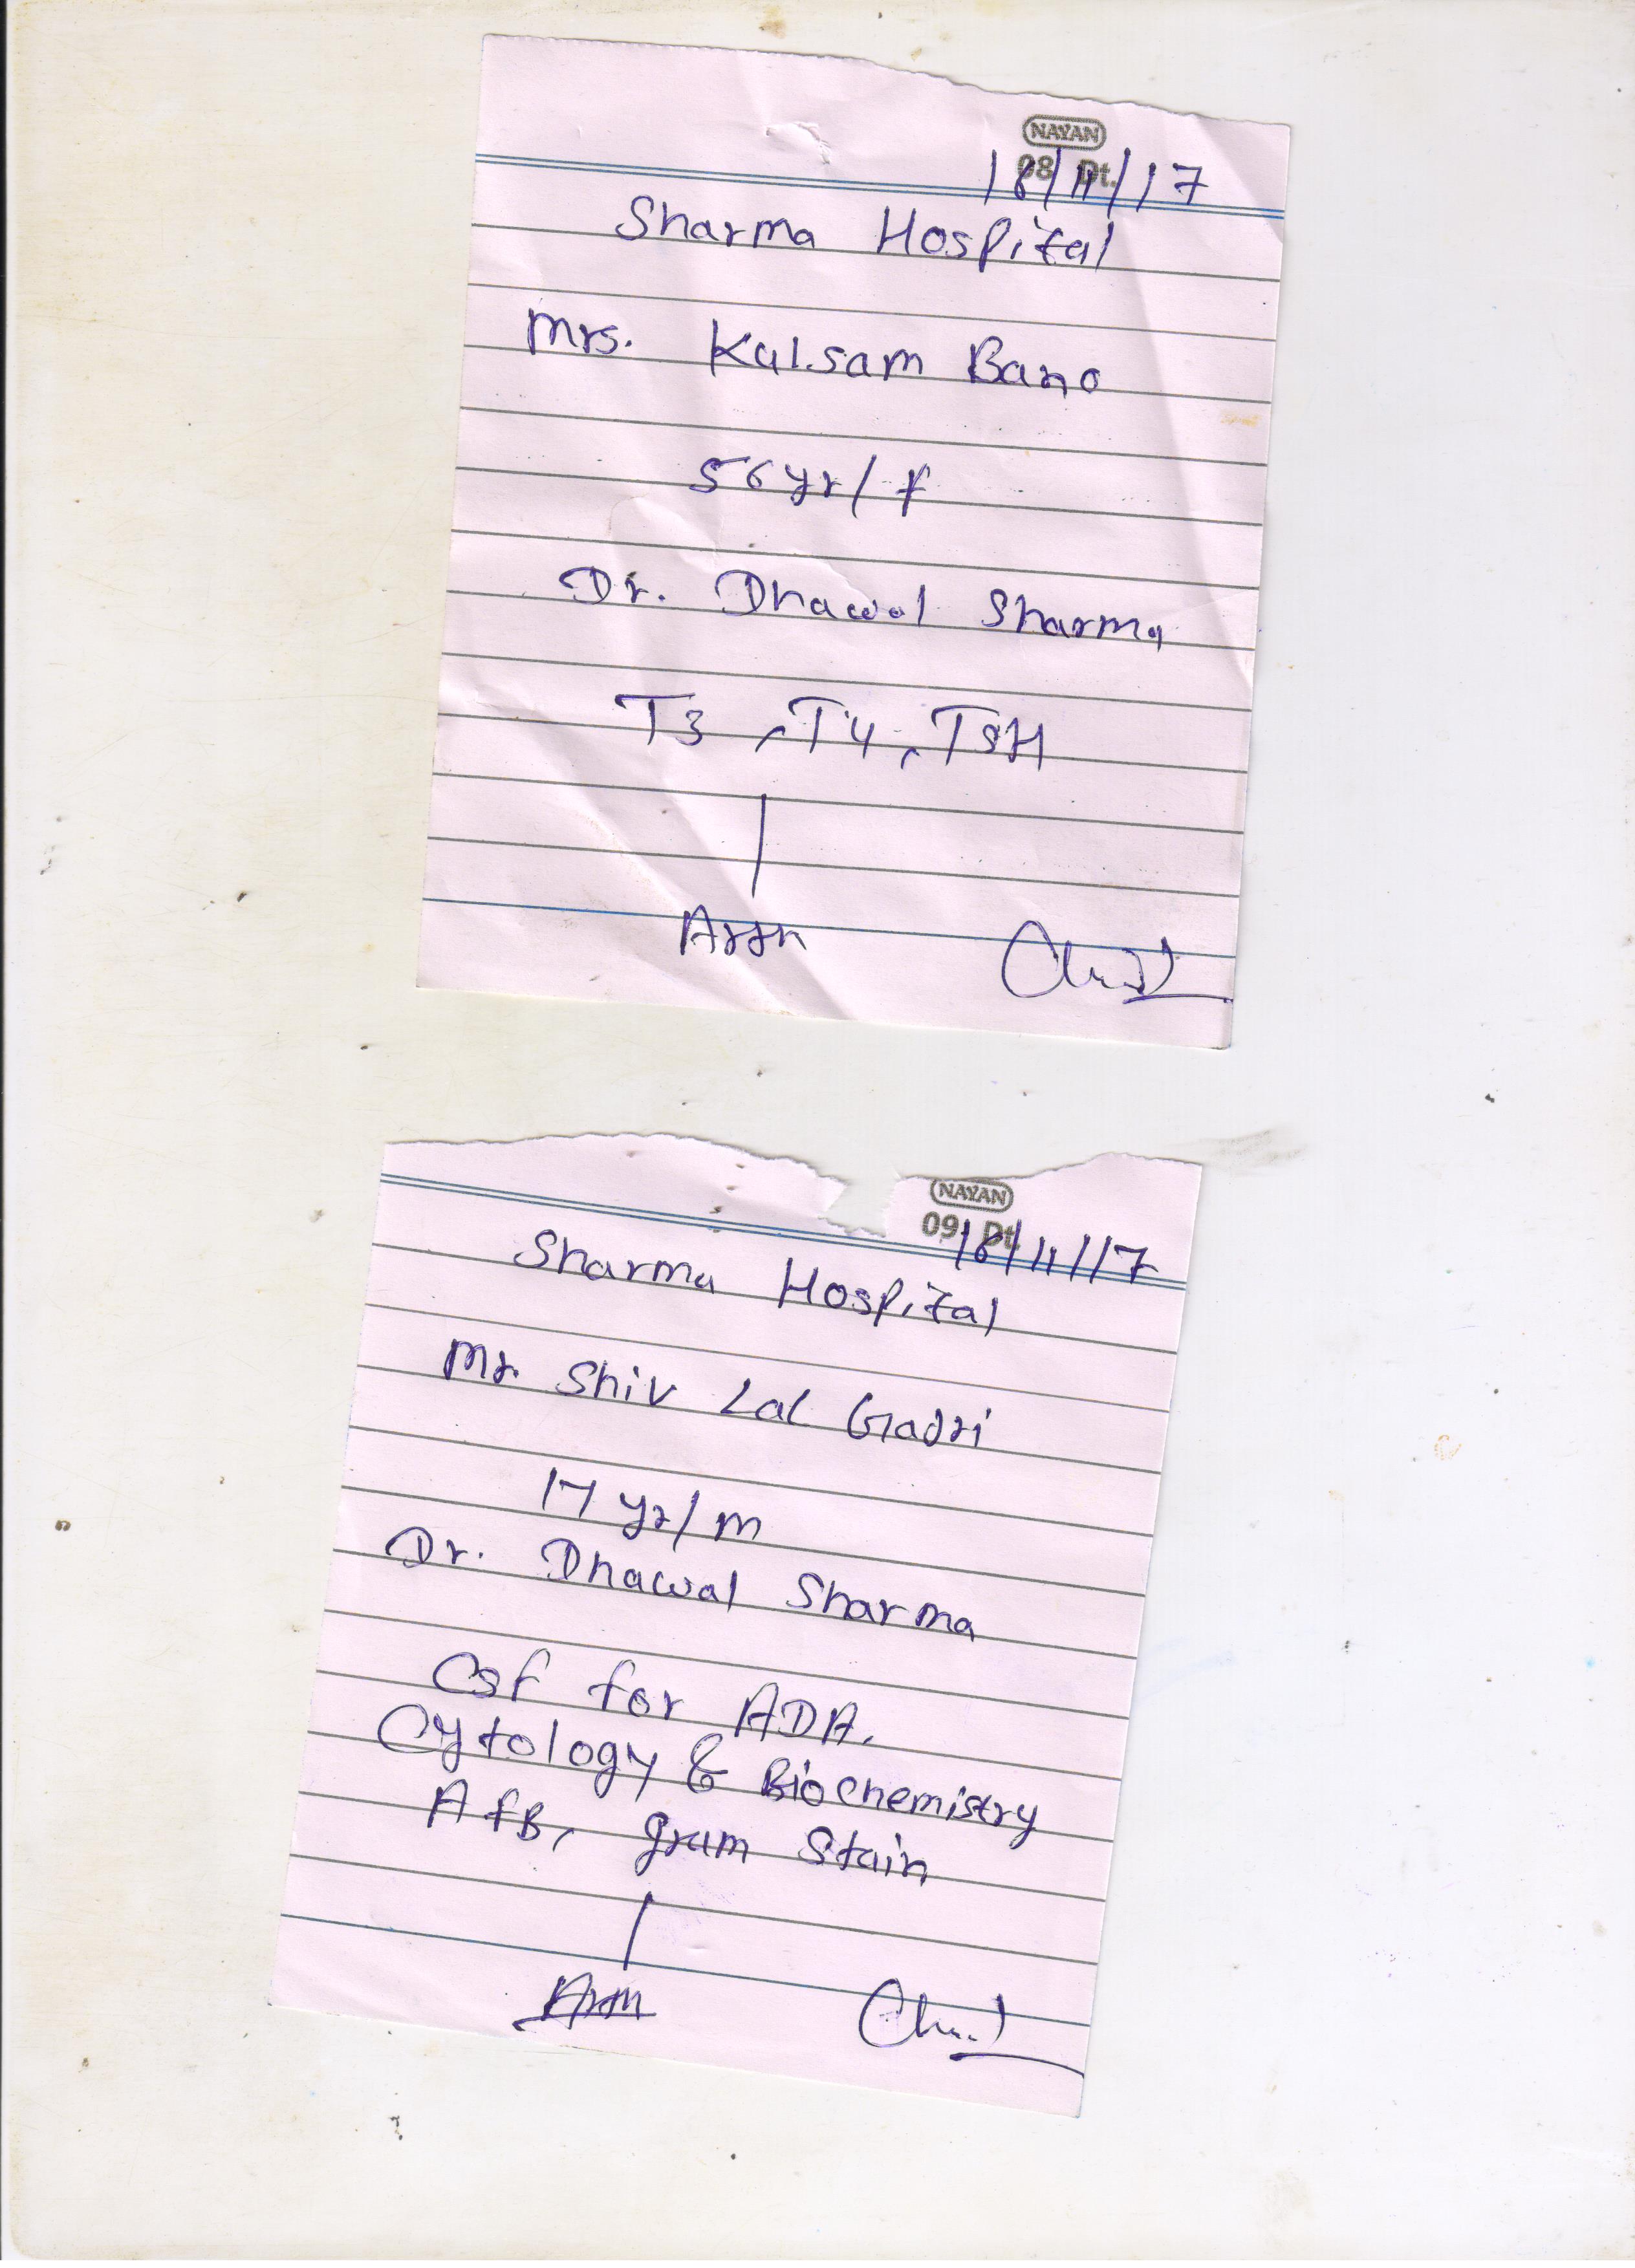 NAYAN
08 Dt.
18/11/17
Sharma Hospital
Mrs. Kulsam Bano
56yr/f
Dr. Dhawal Sharma
T3, T4, TSH
NAYAN
09 Dt.
18/11/17
Sharma Hospital
Mr. Shiv Lal Gadri
17 yr/m
Dr. Dhawal Sharma
Csf for ADA.
Cytology & Biochemistry
AfB, gram Stain